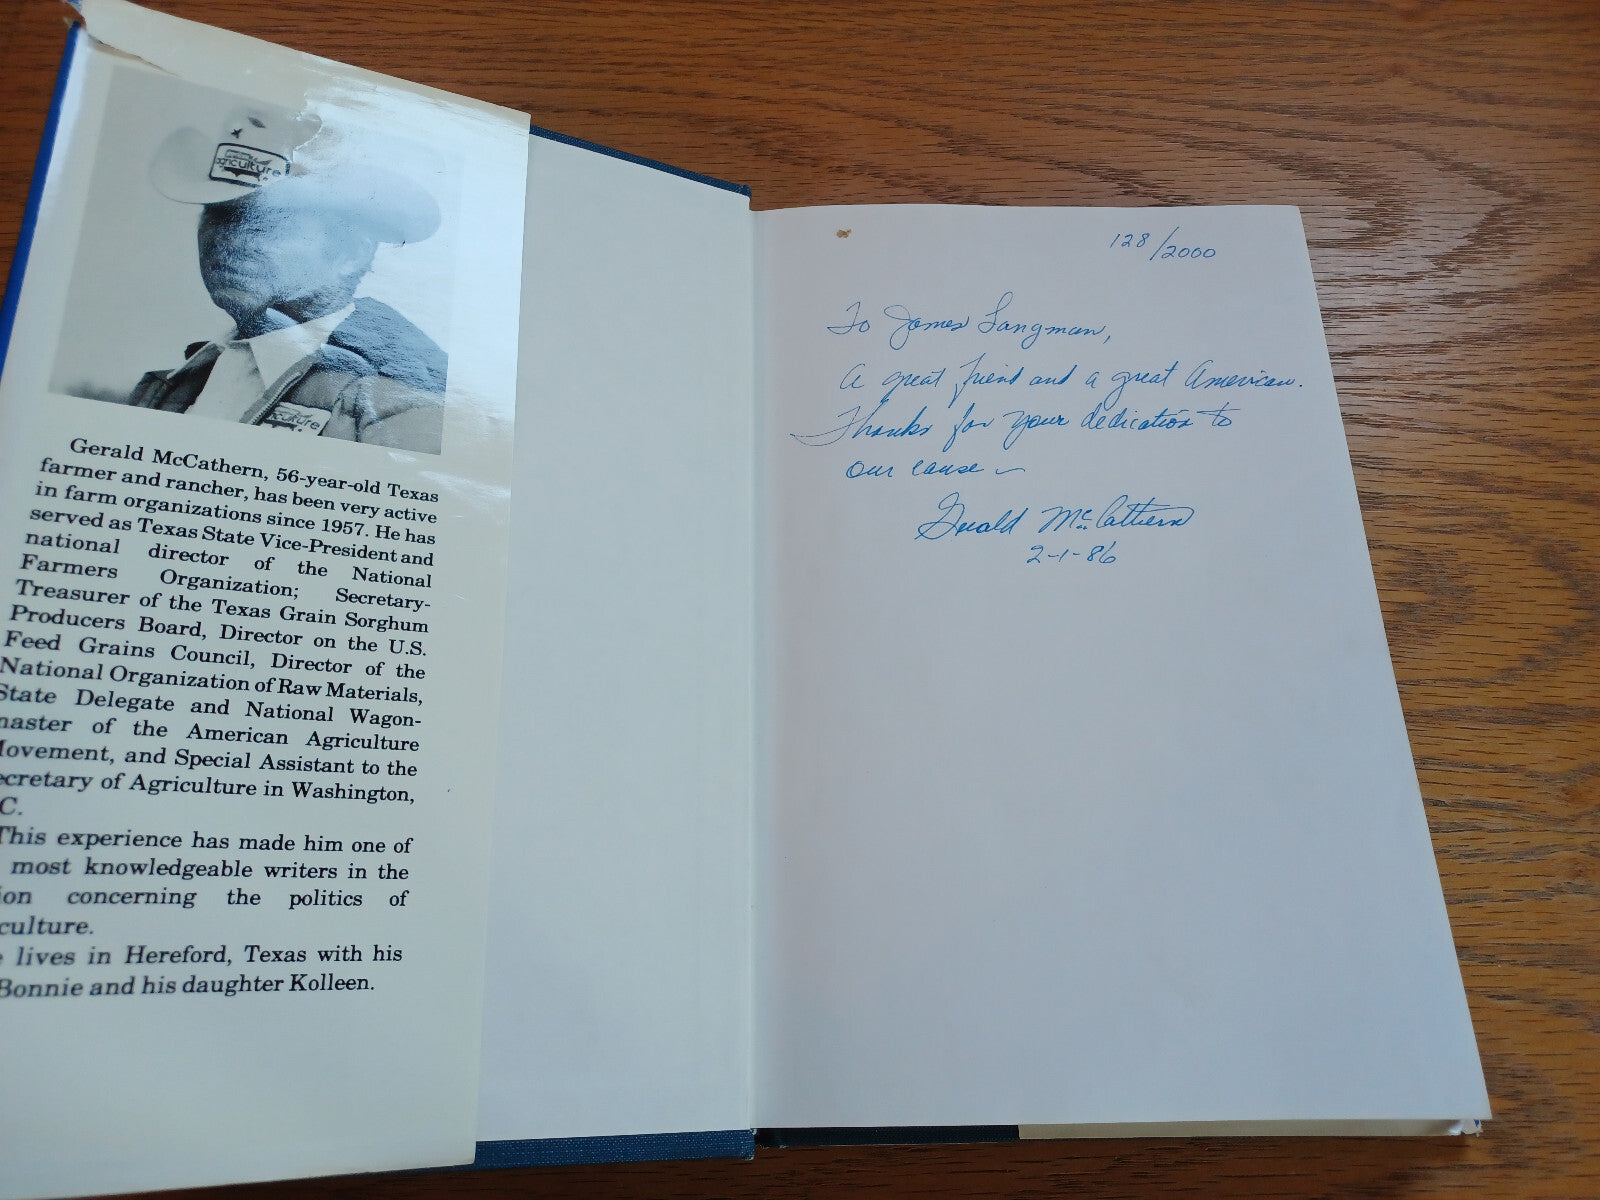 agriculture
culture
Gerald McCathern, 56-year-old Texas
farmer and rancher, has been very active
in farm organizations since 1957. He has
served as Texas State Vice-President and
national director of the National
Farmers Organization; Secretary-
Treasurer of the Texas Grain Sorghum
Producers Board, Director on the U.S.
Feed Grains Council, Director of the
National Organization of Raw Materials,
State Delegate and National Wagon-
master of the American Agriculture
Movement, and Special Assistant to the
ecretary of Agriculture in Washington,
C.
This experience has made him one of
most knowledgeable writers in the
ion concerning the politics of
culture.
e lives in Hereford, Texas with his
Bonnie and his daughter Kolleen.
128/2000
To James Langman,
A great friend and a great American.
Thanks for your dedication to
our cause ~
Gerald McCathern
2-1-86